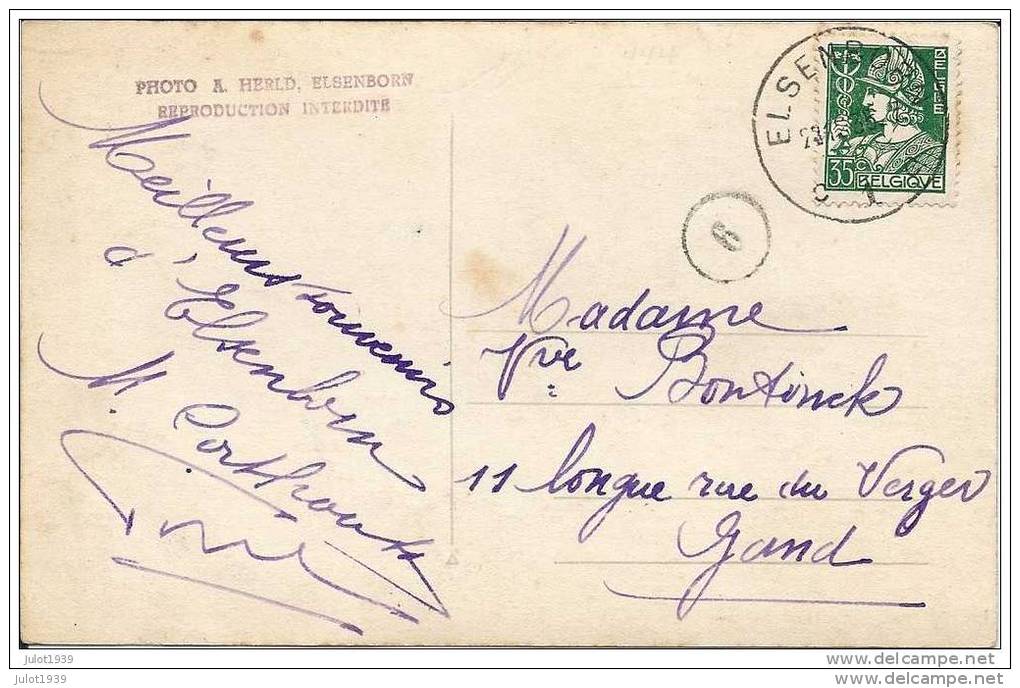 PHOTO A. HERLD, ELSENBORN
REPRODUCTION INTERDITE
Meilleurs souvenirs
d'Elsenborn
M.
ELSENB
C 1
BELGIE
35 C
BELGIQUE
6
Madame
Vve Bontinck
11 longue rue du Verger
Gand
julot1939
julot1939
www.delcampe.net